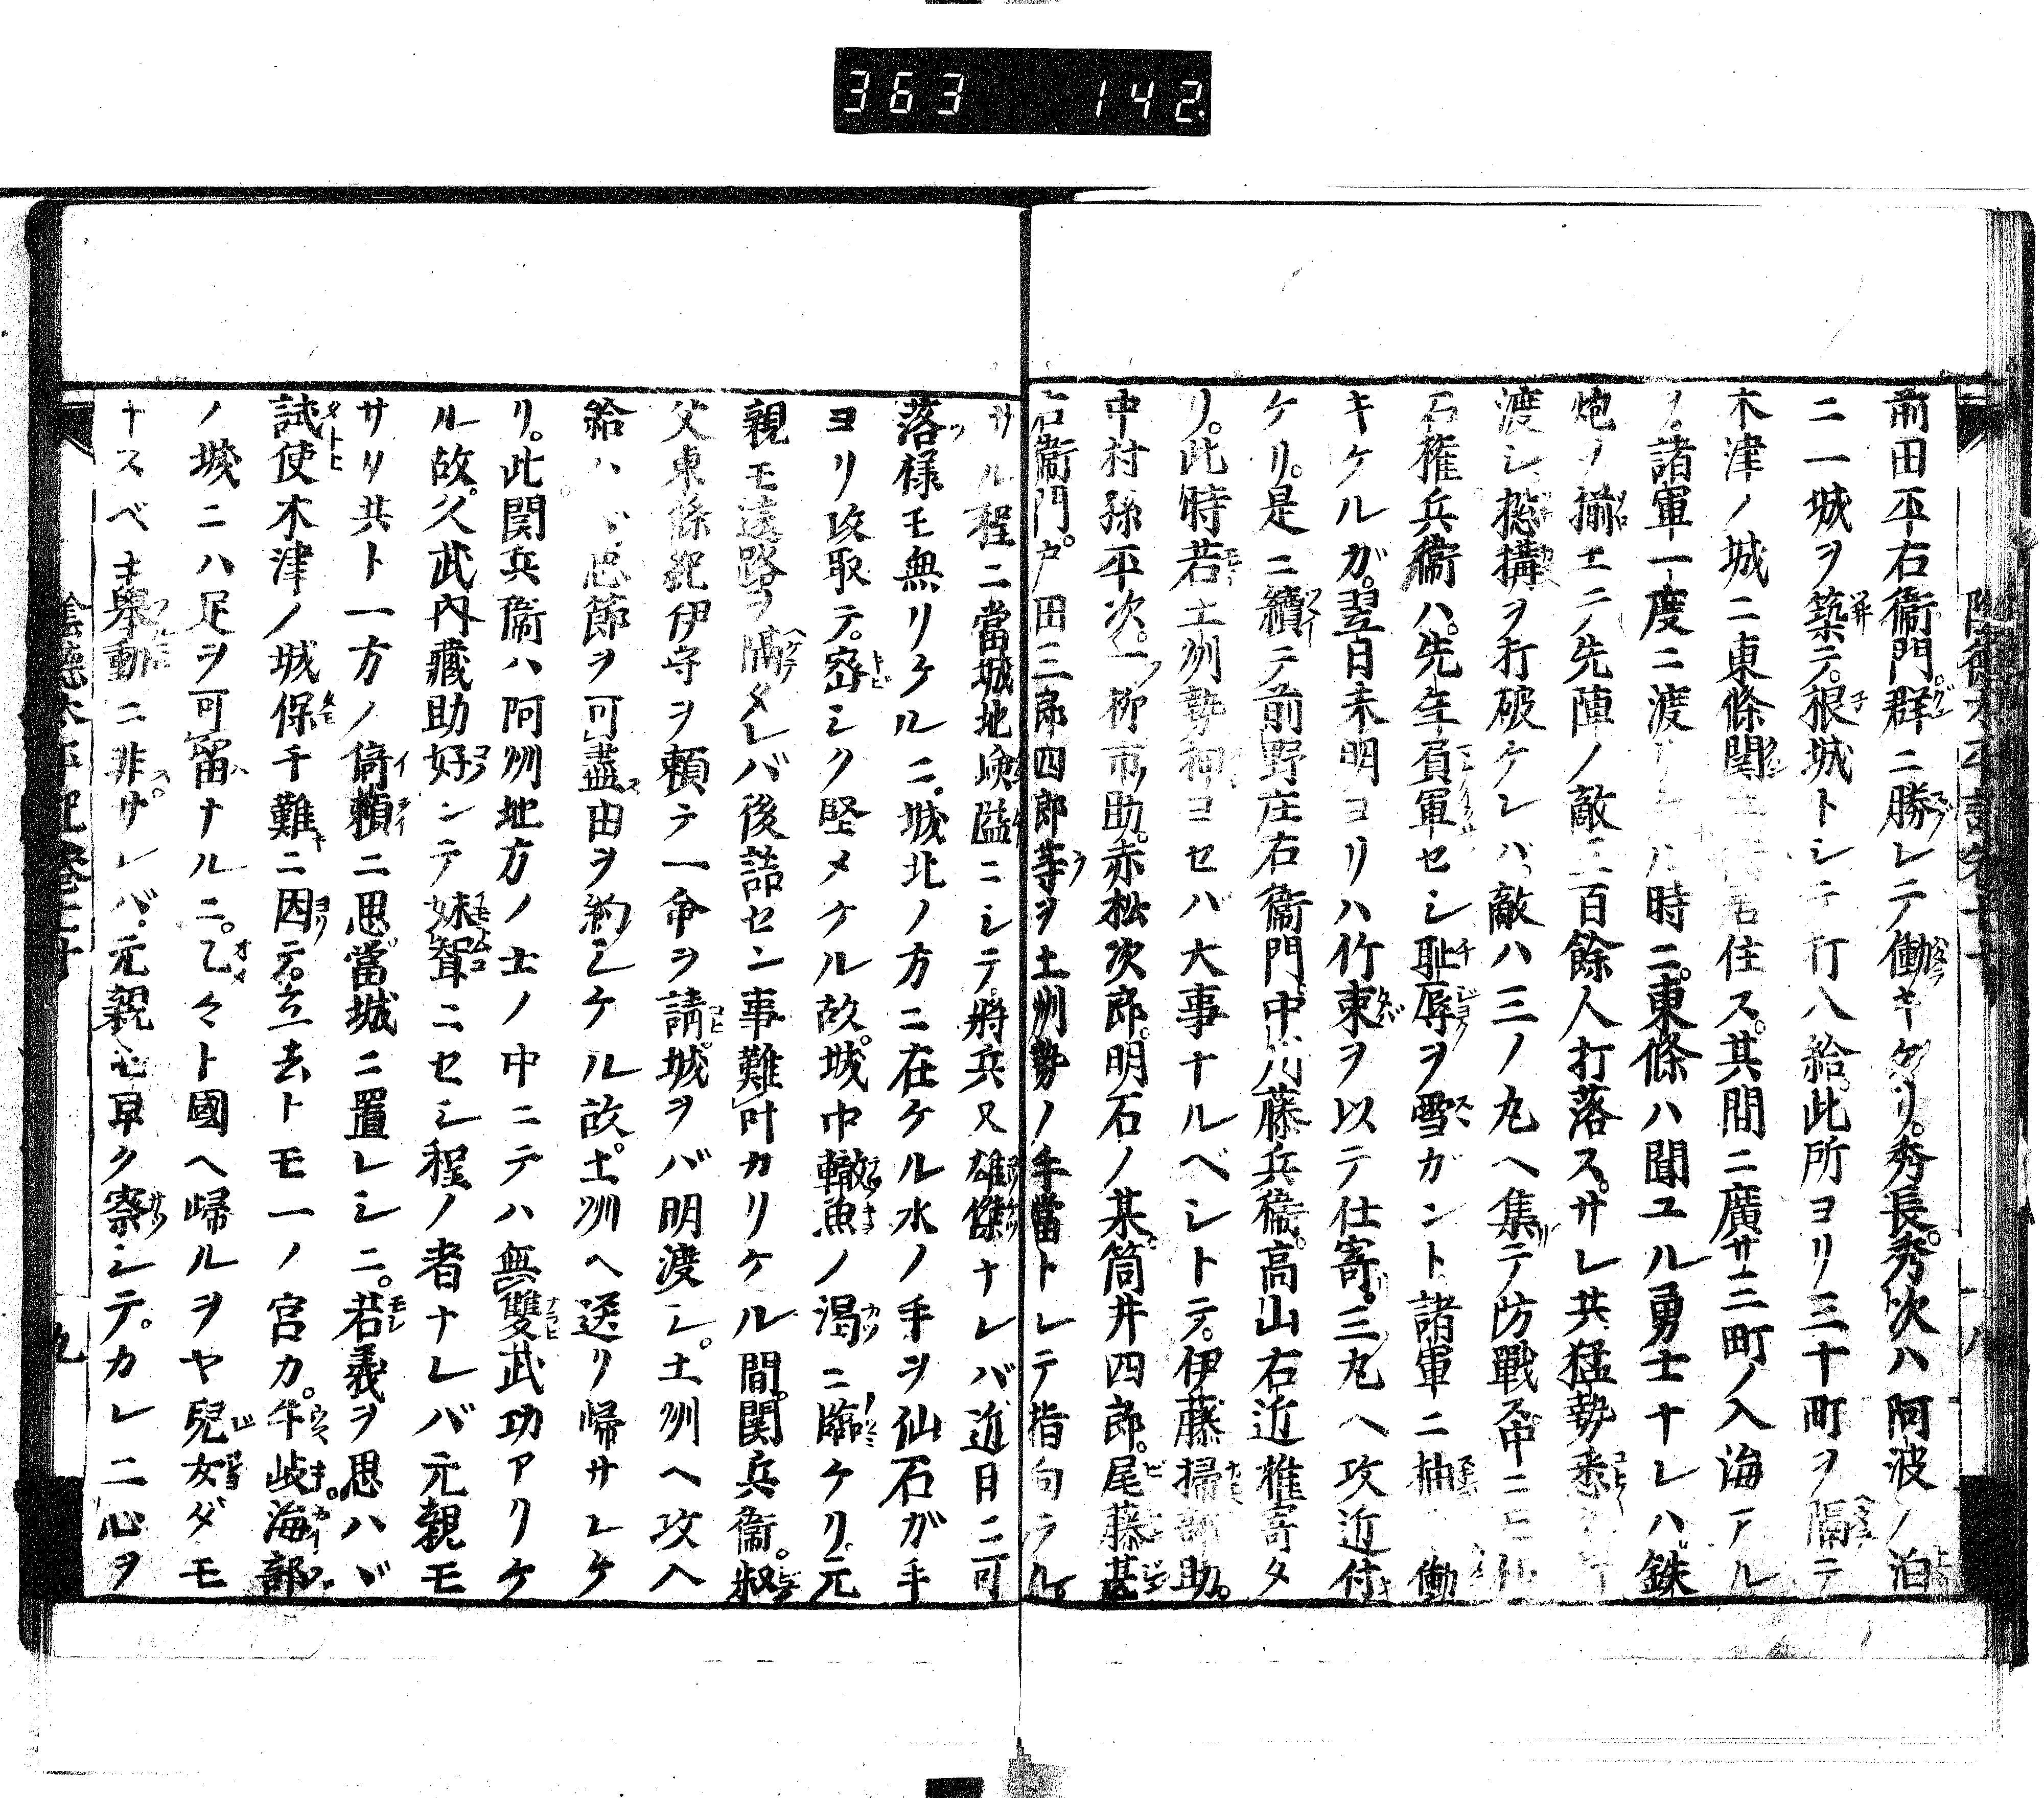 363 142.
前田平右衞門。群ニ勝レテ働キケリ。秀長。秀次ハ阿波ノ泊
ニ一城ヲ築テ。根城トシテ打八給。此所ヨリ三十町ヲ隔テ
木津ノ城ニ東條関 住ス。其間ニ廣サ三町ノ入海アル
ヲ。諸軍一度ニ渡 ル時ニ。東條ハ聞ユル勇士ナレハ。銕
炮ノ揃エテ先陣ノ敵 百餘人打落ス。サレ共猛勢悉
渡シ惣搆ヲ打破ケレバ、敵ハ三ノ丸ヘ集テ防戰ス。中ニモ仙
石権兵衞ハ。先年負軍セシ耻辱ヲ雪ガント諸軍ニ抽 働
キケルガ。翌日未明ヨリハ竹束ヲ以テ仕寄。三丸ヘ攻近付
ケリ。是ニ續テ前野庄右衞門中川藤兵衞。高山右近椎寄タ
リ。此時若土州勢 ヨセバ大事ナルベシトテ。伊藤掃部助。
中村孫平次。一柳市助。赤松次郎。明石ノ某。筒井四郎。尾藤甚
右衞門。戸田三郎四郎等ヲ土州勢ノ手當トレテ指向ラル
サル程ニ當城地嶮隘ニシテ。將兵又雄傑ナレバ近日ニ可
落様モ無リケルニ。城北ノ方ニ在ケル水ノ手ヲ仙石ガ手
ヨリ攻取テ。密シク堅メケル故。城中轍魚ノ渇ニ臨ケリ。元
親モ遠路ヲ隔タレバ後詰セン事難叶カリケル間。関兵衞。叔
父東條紀伊守ヲ頼テ一命ヲ請。城ヲバ明渡シ。土州ヘ攻入
給ハヾ。忠節ヲ可盡由ヲ約シケル故。土州ヘ送リ帰サレケ
リ。此関兵衞ハ阿州地方ノ士ノ中ニテハ無雙武功アリケ
ル故。久武内藏助好ンテ妹聟ニセシ程ノ者ナレバ元親モ
サリ共ト一方ノ倚頼ニ思。當城ニ置レシニ。若義ヲ思ハヾ
試使木津ノ城保千難ニ因テ。立去トモ一ノ宮カ。牛岐海部
ノ城ニハ足ヲ可留ナルニ。乙々ト國ヘ帰ルヲヤ兒女ダモ
ナスベキ舉動ニ非サレバ。元親モ早ク察シテ。カレ二心ヲ
陰德太平記卷七十
九